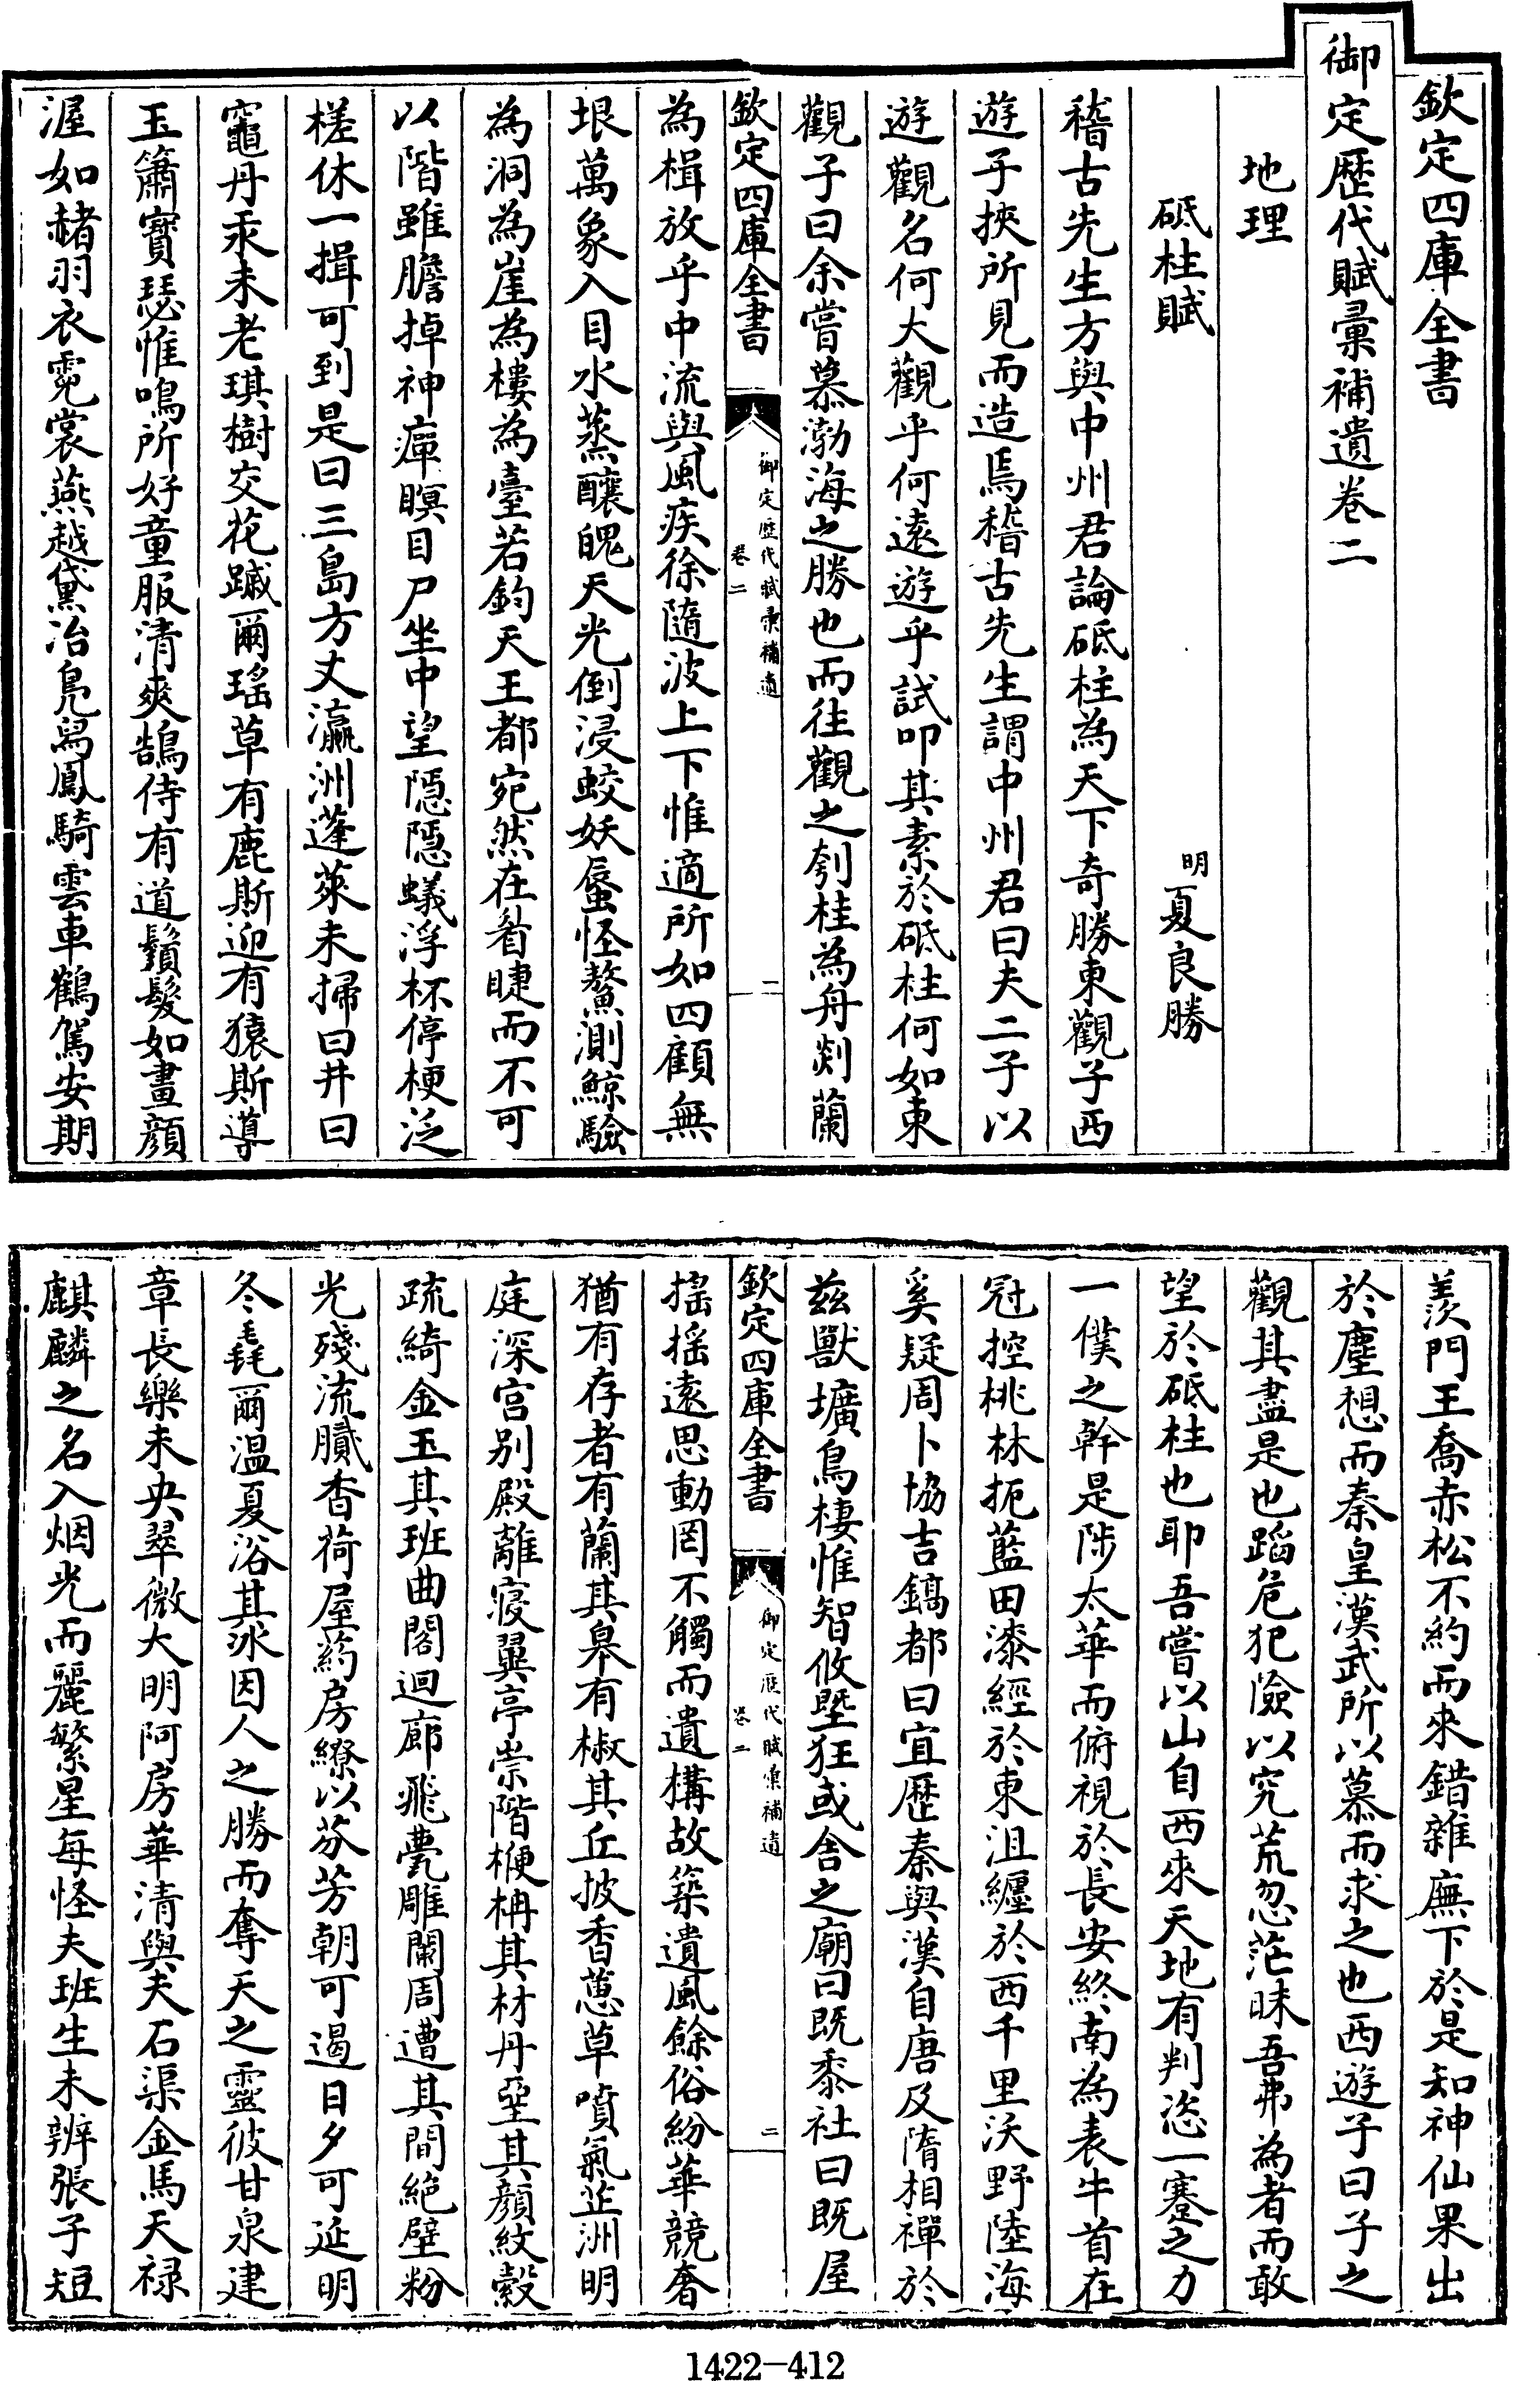 欽定四庫全書
御定歷代賦彙補遺卷二
地理
砥柱賦
明夏良勝
稽古先生方與中州君論砥柱為天下奇勝東觀子西
遊子挾所見而造焉稽古先生謂中州君曰夫二子以
遊觀名何大觀乎何遠遊乎試叩其素於砥柱何如東
觀子曰余嘗慕渤海之勝也而往觀之刳桂為舟剡蘭
欽定四庫全書
御定歷代賦彙補遺
卷二
二
為楫放乎中流與風疾徐隨波上下惟適所如四顧無
垠萬象入目水蒸釀魄天光倒浸蛟妖蜃怪鰲測鯨驗
為洞為崖為樓為臺若鈞天王都宛然在眥睫而不可
以階雖膽掉神瘅瞑目尸坐中望隱隱蟻浮杯停梗泛
槎休一揖可到是曰三島方丈瀛洲蓬萊未掃曰井曰
竈丹汞未老琪樹交花蹴爾瑤草有鹿斯迎有猿斯導
玉簫寶瑟惟鳴所好童服清爽鵠侍有道鬚髮如畫顏
渥如赭羽衣霓裳燕越黛冶鳧舄鳳騎雲車鶴駕安期
羨門王喬赤松不約而來錯雜廡下於是知神仙果出
於塵想而秦皇漢武所以慕而求之也西遊子曰子之
觀其盡是也蹈危犯險以究荒忽茫昧吾弗為者而敢
望於砥柱也耶吾嘗以山自西來天地有判恣一蹇之力
一僕之幹是陟太華而俯視於長安終南為表牛首在
冠控桃林扼藍田漆經於東沮纒於西千里沃野陸海
奚疑周卜協吉鎬都曰宜歷秦與漢自唐及隋相禪於
茲獸壙鳥棲惟智攸塈狂或舍之廟曰既黍社曰既屋
欽定四庫全書
御定歷代賦彙補遺
卷二
二
搖搖遠思動罔不觸而遺構故築遺風餘俗紛華競奢
猶有存者有蘭其皋有椒其丘披香蕙草噴氣茝洲明
庭深宮别殿離寢翼亭崇階楩柟其材丹堊其顏紋縠
疏綺金玉其班曲閣迴廊飛甍雕闌周遭其間絶壁粉
光殘流膩香荷屋葯房繚以芬芳朝可遏日夕可延明
冬毳爾温夏浴其冰因人之勝而奪天之靈彼甘泉建
章長樂未央翠微大明阿房華清與夫石渠金馬天禄
麒麟之名入烟光而麗繁星每怪夫班生未辨張子短
1422-412